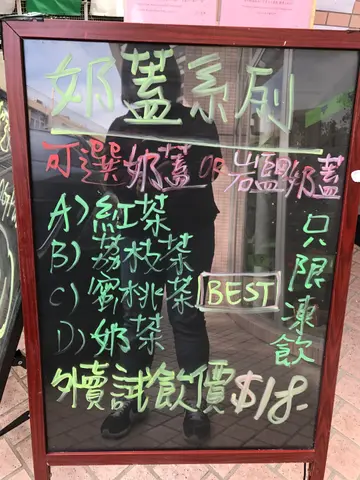 奶蓋系列
可選奶蓋 OR 岩鹽奶蓋
A) 紅茶
B) 荔枝茶
C) 蜜桃茶 BEST
D) 奶茶
只限凍飲
外賣試飲價 $18.